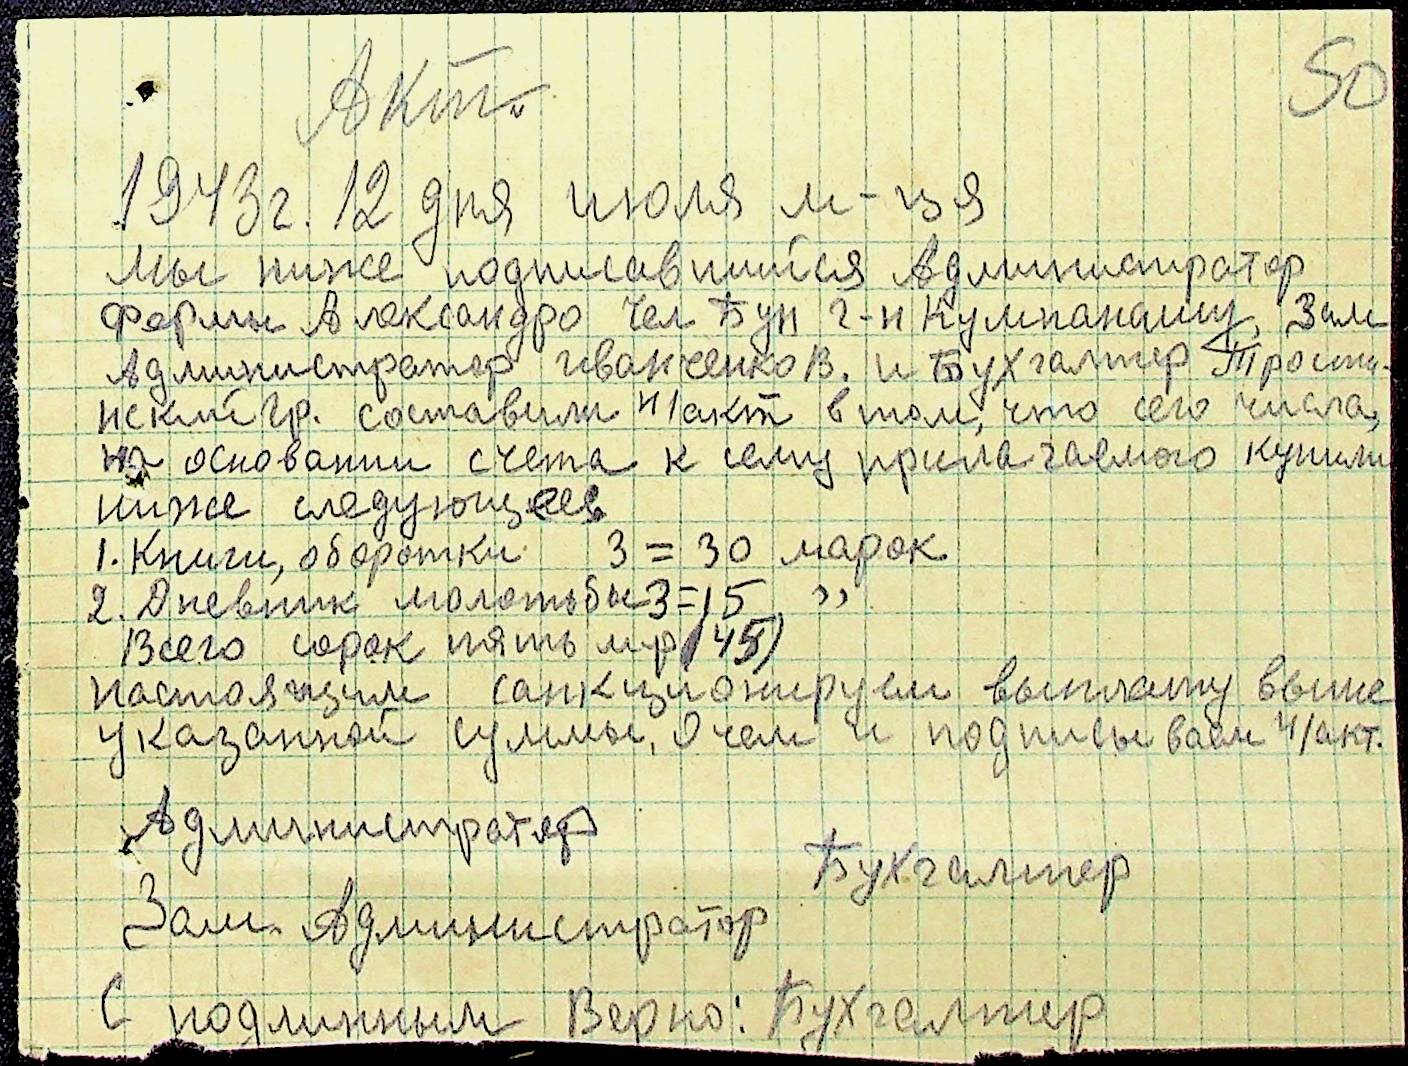 Акт.
50
1943г. 12 дня июля м-ця
мы ниже подписавшийся Администратор
Фермы Александро Чел Бун г-н Кумпанашу, Зам
Администратор Иванченко В. и Бухгалтер Трости-
нский Гр. составили н/акт в том, что сего числа,
на основании счета к сему прилагаемого купили
ниже следующеев
1. Книги, оборотки 3 = 30 марок
2. Дневник молотьбы 3=15 "
Всего сорок пять мр (45)
настоящим санкционируем выплату выше
указанной суммы, О чем и подписываем н/акт.
Администратор
Бухгалтер
Зам. Администратор
С подлинным Верно: Бухгалтер